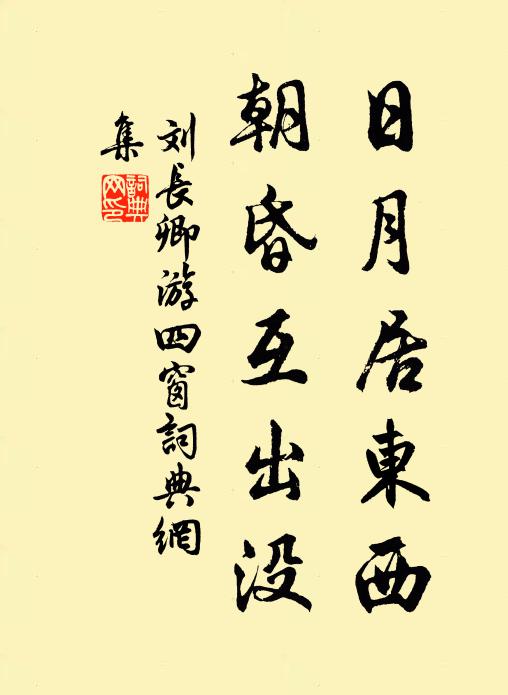 日月居東西
朝昏互出没
刘長卿游四窗詞典網
集
詞典網印